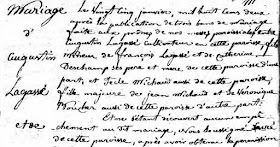 Mariage
d'
Augustin
Lagassé
et de
Le vingt cinq janvier, mil huit cent deux
après la publication de trois bans de mariage
faite aux prônes de nos messes paroissiales entre
Augustin Lagassé cultivateur de cette paroisse, fils
mineur de François Lagassé et de Catherine
Deschamps ses père et mère de cette paroisse d'une
part, et Félé Michaud aussi de cette paroisse,
fille majeure de Jean Michaud et de Véronique
Boucher aussi de cette paroisse d'autre part;
Et ne s'étant découvert aucun empê
chement au dit mariage, Nous soussigné
de cette paroisse, après avoir obtenu la permission